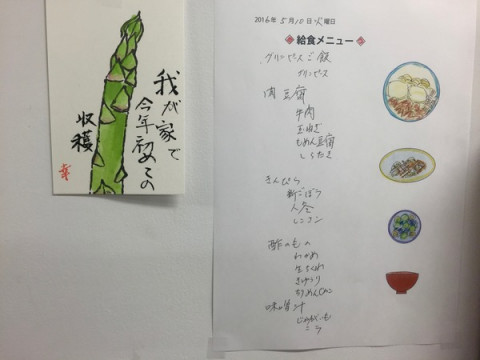 我が家で
今年初の
収穫
2016年 5月10日 火曜日
給食メニュー
グリンピースご飯
グリンピース
肉豆腐
牛肉
玉ねぎ
もめん豆腐
しらたき
きんぴら
新ごぼう
人参
レンコン
酢のもの
わかめ
生ちくわ
きゅうり
ちりめんじゃこ
味噌汁
じゃがいも
ニラ